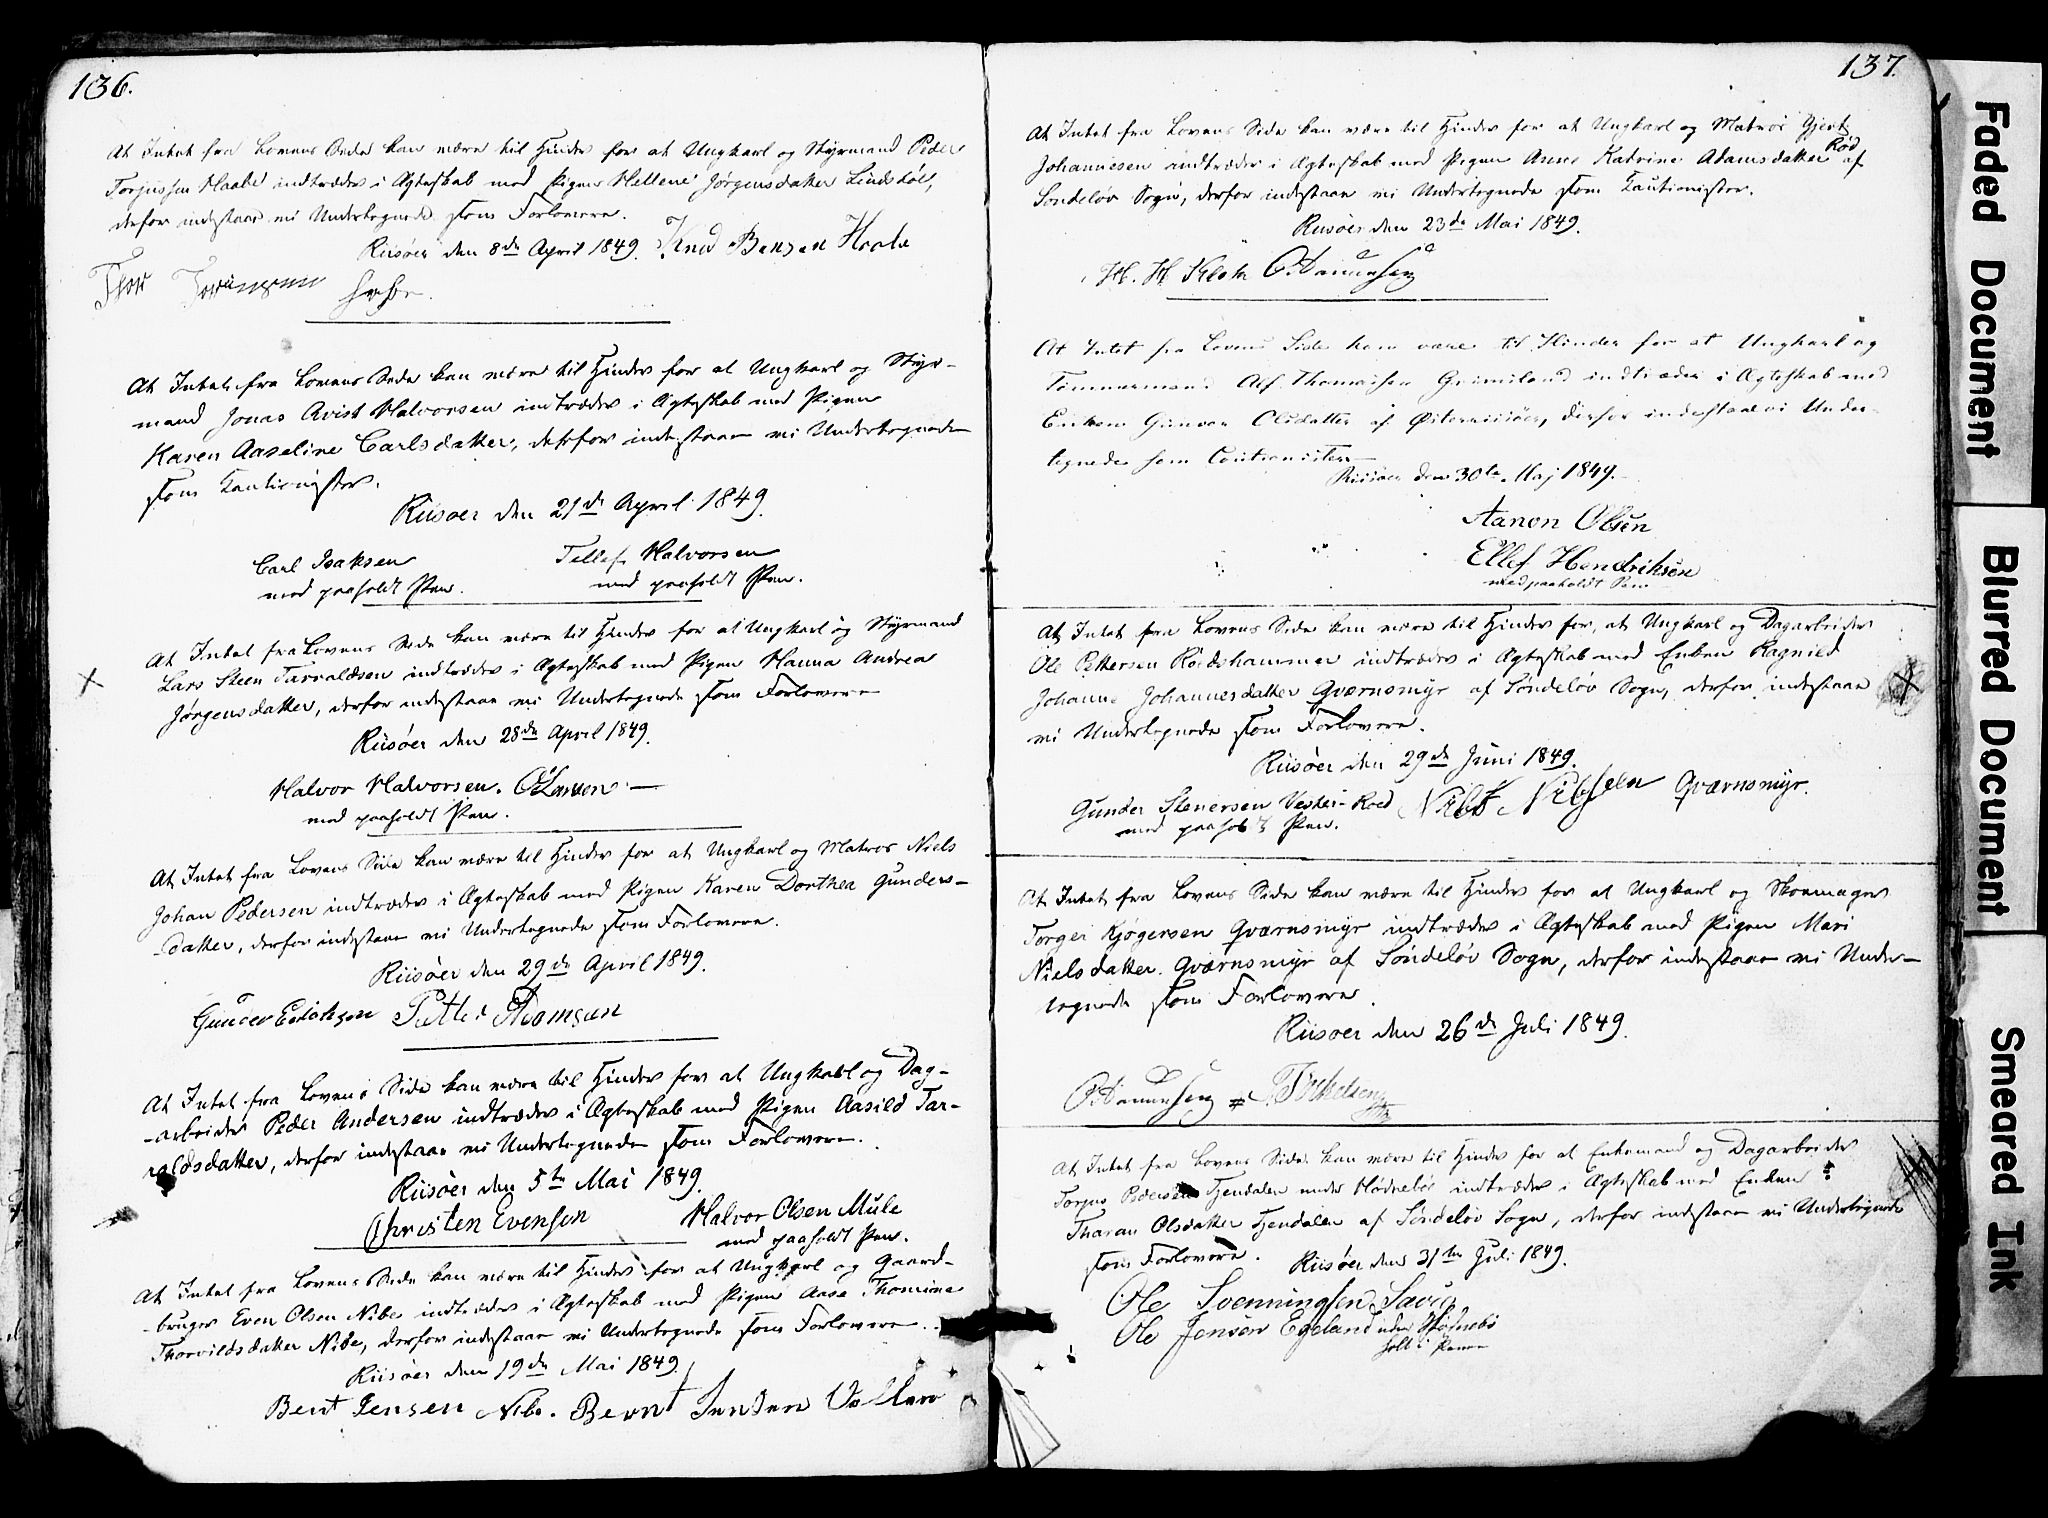 136.
At Intet fra Lovens Side kan være til Hinder for at Ungkarl og Styrmand Peder
Torjussen Haabe indtræder i Ægteskab med Pigen Hellene Jørgensdatter Lindstøl,
derfor indestaae vi Undertegnede som Forlovere.
Riisøer den 8de April 1849. Knud Bensen
At Intet fra Lovens Side kan være til Hinder for at Ungkarl og Styr-
mand Jonas Qvist Halvorsen indtræder i Ægteskab med Pigen
Karen Aaseline Carlsdatter, derfor indestaae vi Undertegnede
som Kautionister.
Riisøer den 21de April 1849.
Carl Isaksen Tellef Halvorsen
med paaholdt Pen. med paaholdt Pen.
At Intet fra Lovens Side kan være til Hinder for at Ungkarl og Styrmand
Lars Steen Tarraldsen indtræder i Ægteskab med Pigen Hanna Andrea
Jørgensdatter, derfor indestaae vi Undertegnede som Forlovere
Riisøer den 28de April 1849.
Halvor Halvorsen. O Larsen
med paaholdt Pen.
At Intet fra Lovens Side kan være til Hinder for at Ungkarl og Matros Niels
Johan Pedersen indtræder i Ægteskab med Pigen Karen Dorthea Gunders-
datter, derfor indestaae vi Undertegnede som Forlovere.
Riisøer den 29de April 1849.
Gunder Petter Thomsen
At Intet fra Lovens Side kan være til Hinder for at Ungkarl og Dag-
-arbeider Peder Andersen indtræder i Ægteskab med Pigen Aasild Tar-
raldsdatter, derfor indestaae vi Undertegnede som Forlovere.
Riisøer den 5te Mai 1849.
Christen Evensen Halvor Olsen Mule
med paaholdt Pen.
At Intet fra Lovens Side kan være til Hinder for at Ungkarl og Gaard-
-bruger Even Olsen Nibe indtræder i Ægteskab med Pigen Aase Thomine
Thorvildsdatter Nibe, derfor indestaae vi Undertegnede som Forlovere.
Riisøer den 19de Mai 1849.
Bent Jensen Nibe. Bernt Jensen
137.
At Intet fra Lovens Side kan være til Hinder for at Ungkarl og Matros Gjert
Johannesen indtræder i Ægteskab med Pigen Anne Katrine Adamsdatter Rød af
Søndeløv Sogn, derfor indestaae vi Undertegnede som Kautionister.
Riisøer den 23de Mai 1849.
H. H.
At Intet fra Lovens Side kan være til Hinder for at Ungkarl og
Tømmermand Alf Thomassen Grimsland indtræder i Ægteskab med
Enken Gunvor Olsdatter af Østerriisøer, derfor indestaae vi Under-
tegnede som Cautionister
Riisøer den 30te Maj 1849.
Aanon Olsen
Ellef Hendriksen
med paaholdt Pen
At Intet fra Lovens Side kan være til Hinder for, at Ungkarl og Dagarbeider
Ole Pettersen Rødshammer indtræder i Ægteskab med Enken Ragnild
Johanne Johannesdatter Qværnsmyr af Søndeløv Sogn, derfor indestaae
vi Undertegnede som Forlovere.
Riisøer den 29de Juni 1849.
Gunder Stenersen Vester-Roed Niels Nielsen Qværnsmyr.
med paaholdt Pen.
At Intet fra Lovens Side kan være til Hinder for at Ungkarl og Skoemager
Torger Kjøgersen Qværnsmyr indtræder i Ægteskab med Pigen Mari
Nielsdatter Qværnsmyr af Søndeløv Sogn, derfor indestaae vi Under-
tegnede som Forlovere.
Riisøer den 26de Juli 1849.
Terkelsen
At Intet fra Lovens Side kan være til Hinder for at Enkemand og Dagarbeider
Torjus Pedersen Fjendalen under Hødnebøe indtræder i Ægteskab med Enken
Tharan Olsdatter Fjendalen af Søndeløv Sogn, derfor indestaae vi Undertegnede
som Forlovere. Riisøer den 31te Juli 1849.
Ole Svenningsen
Ole Jensen Egeland under Hødnebø
holt i Penne
Faded Document
Blurred Document
Smeared Ink